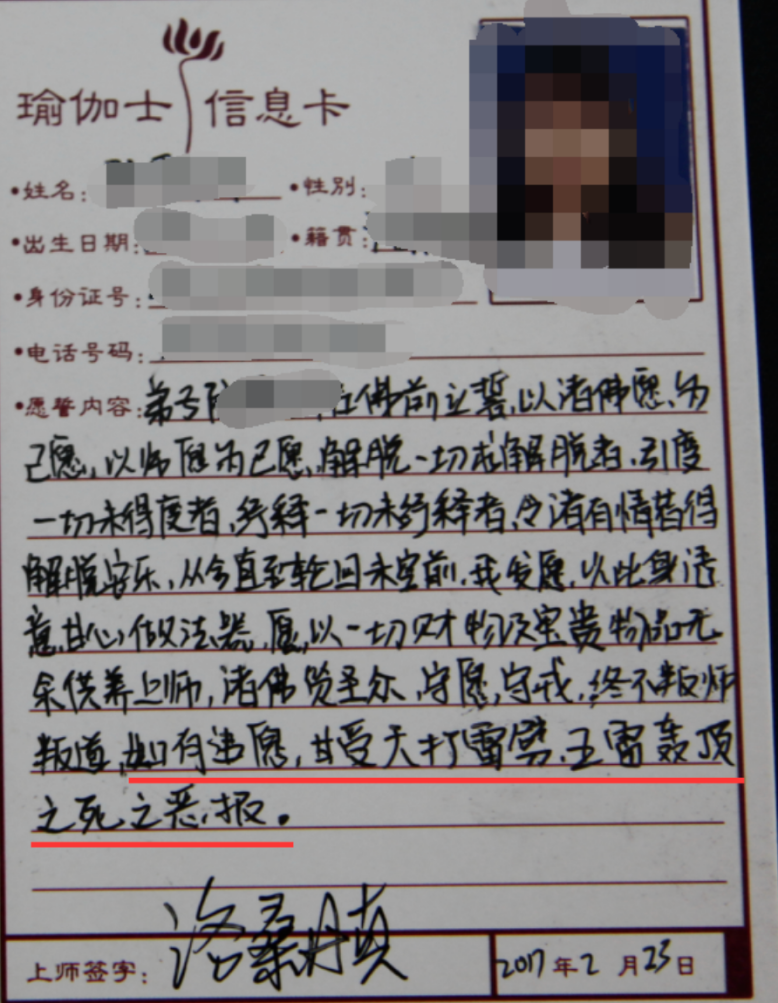 瑜伽士 信息卡
•姓名: •性别:
•出生日期: •籍贯:
•身份证号:
•电话号码:
•愿誓内容:弟子 在佛前立誓,以诸佛愿为
己愿,以师愿为己愿,解脱一切求解脱者,引度
一切未得度者,纾释一切未纾释者,令诸有情皆得
解脱安乐,从今直至轮回未空前,我发愿,以此身语
意甘心做法器,愿以一切财物及宝贵物品无
余供养上师,诸佛贤圣尔,守愿,守戒,终不叛师
叛道,如有违愿,甘受天打雷劈,五雷轰顶
之死之恶报。
上师签字:洛桑丹真 2017年2月23日